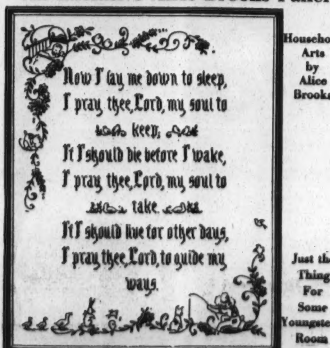 Now I lay me down to sleep,
I pray thee, Lord, my soul to
keep;
If I should die before I wake,
I pray thee, Lord, my soul to
take.
If I should live for other days,
I pray thee, Lord, to guide my
ways.
Arts
by
Alice
Just
Thing
For
Some
Room